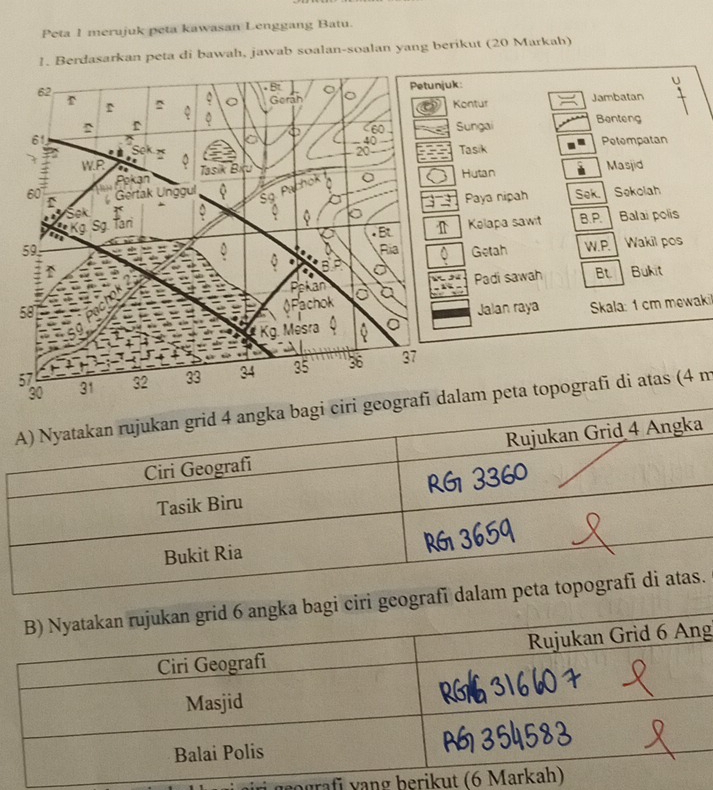 Peta 1 merujuk peta kawasan Lenggang Batu.
1. Berdasarkan peta di bawah, jawab soalan-soalan yang berikut (20 Markah)
62
Bt. Gerah
61
Sek
W.P.
Pekan
Gertak Unggul
Tasik Biru
60
40
20
60
Sg. Pachok
Sek
Kg. Sg. Tari
59
Bt. Ria
B.P.
Pekan
Pachok
58
Sg. Pachok
Kg. Mesra
57
30 31 32 33 34 35 36 37
Petunjuk:
U
Kontur
Jambatan
Sungai
Benteng
Tasik
Petempatan
Hutan
Masjid
Paya nipah
Sek. Sekolah
Kelapa sawit
B.P. Balai polis
Getah
W.P. Wakil pos
Padi sawah
Bt. Bukit
Jalan raya
Skala: 1 cm mewakil
A) Nyatakan rujukan grid 4 angka bagi ciri geografi dalam peta topografi di atas (4 m
Ciri Geografi
Rujukan Grid 4 Angka
Tasik Biru
RG 3360
Bukit Ria
RG 3659
B) Nyatakan rujukan grid 6 angka bagi ciri geografi dalam peta topografi di atas.
Ciri Geografi
Rujukan Grid 6 Ang
Masjid
316607
Balai Polis
RG 354583
geografi yang berikut (6 Markah)